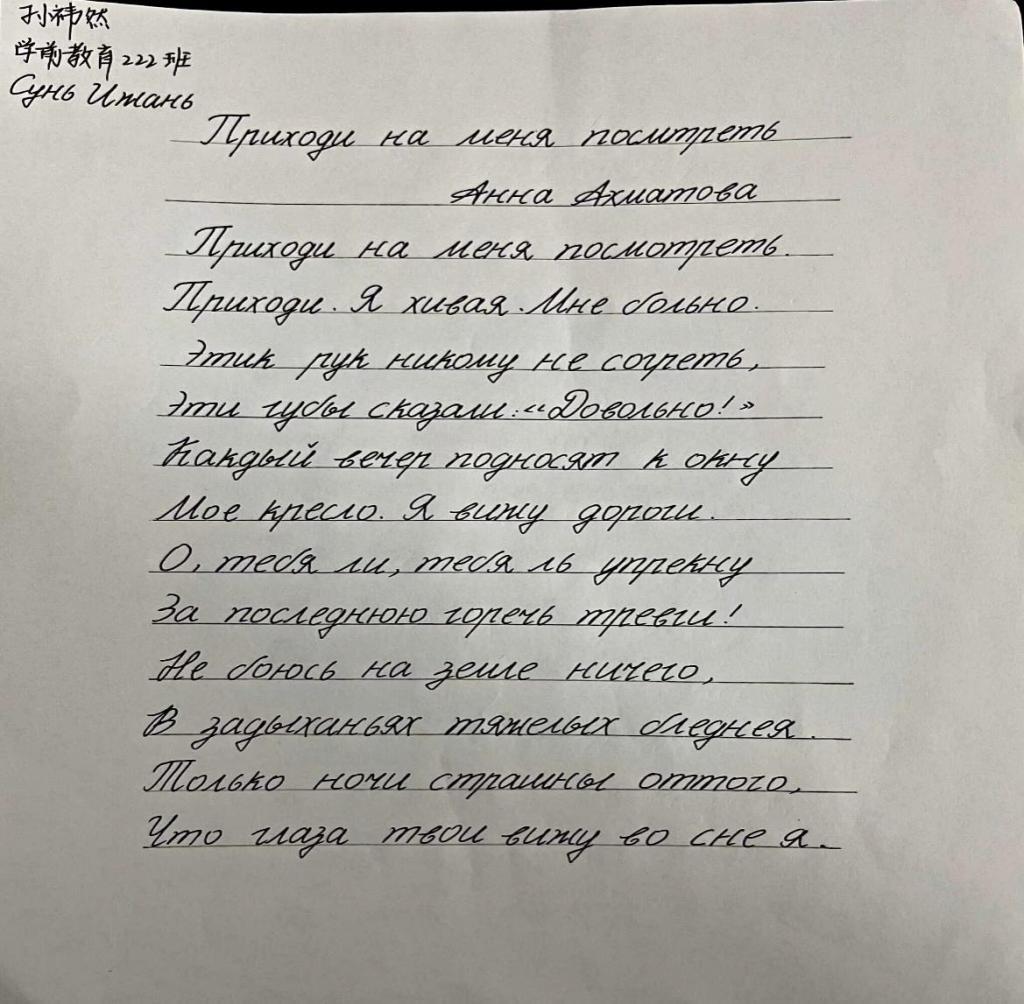 孙祎然
学前教育222班
Сунь Ижань
Приходи на меня посмтреть
Анна Ахматова
Приходи на меня посмотреть.
Приходи. Я хивая. Мне больно.
Этик рук никому не согреть,
Эти губы сказали: «Довольно!»
Какдый вечер подносят к окну
Мое кресло. Я вижу дороги.
О, тебя ли, тебя ль упрекну
За последнюю горечь тревги!
Не боюсь на земле ничего,
В задыханьях тяжелых бледнея.
Только ночи страшны оттого,
Что глаза твои вижу во сне я.